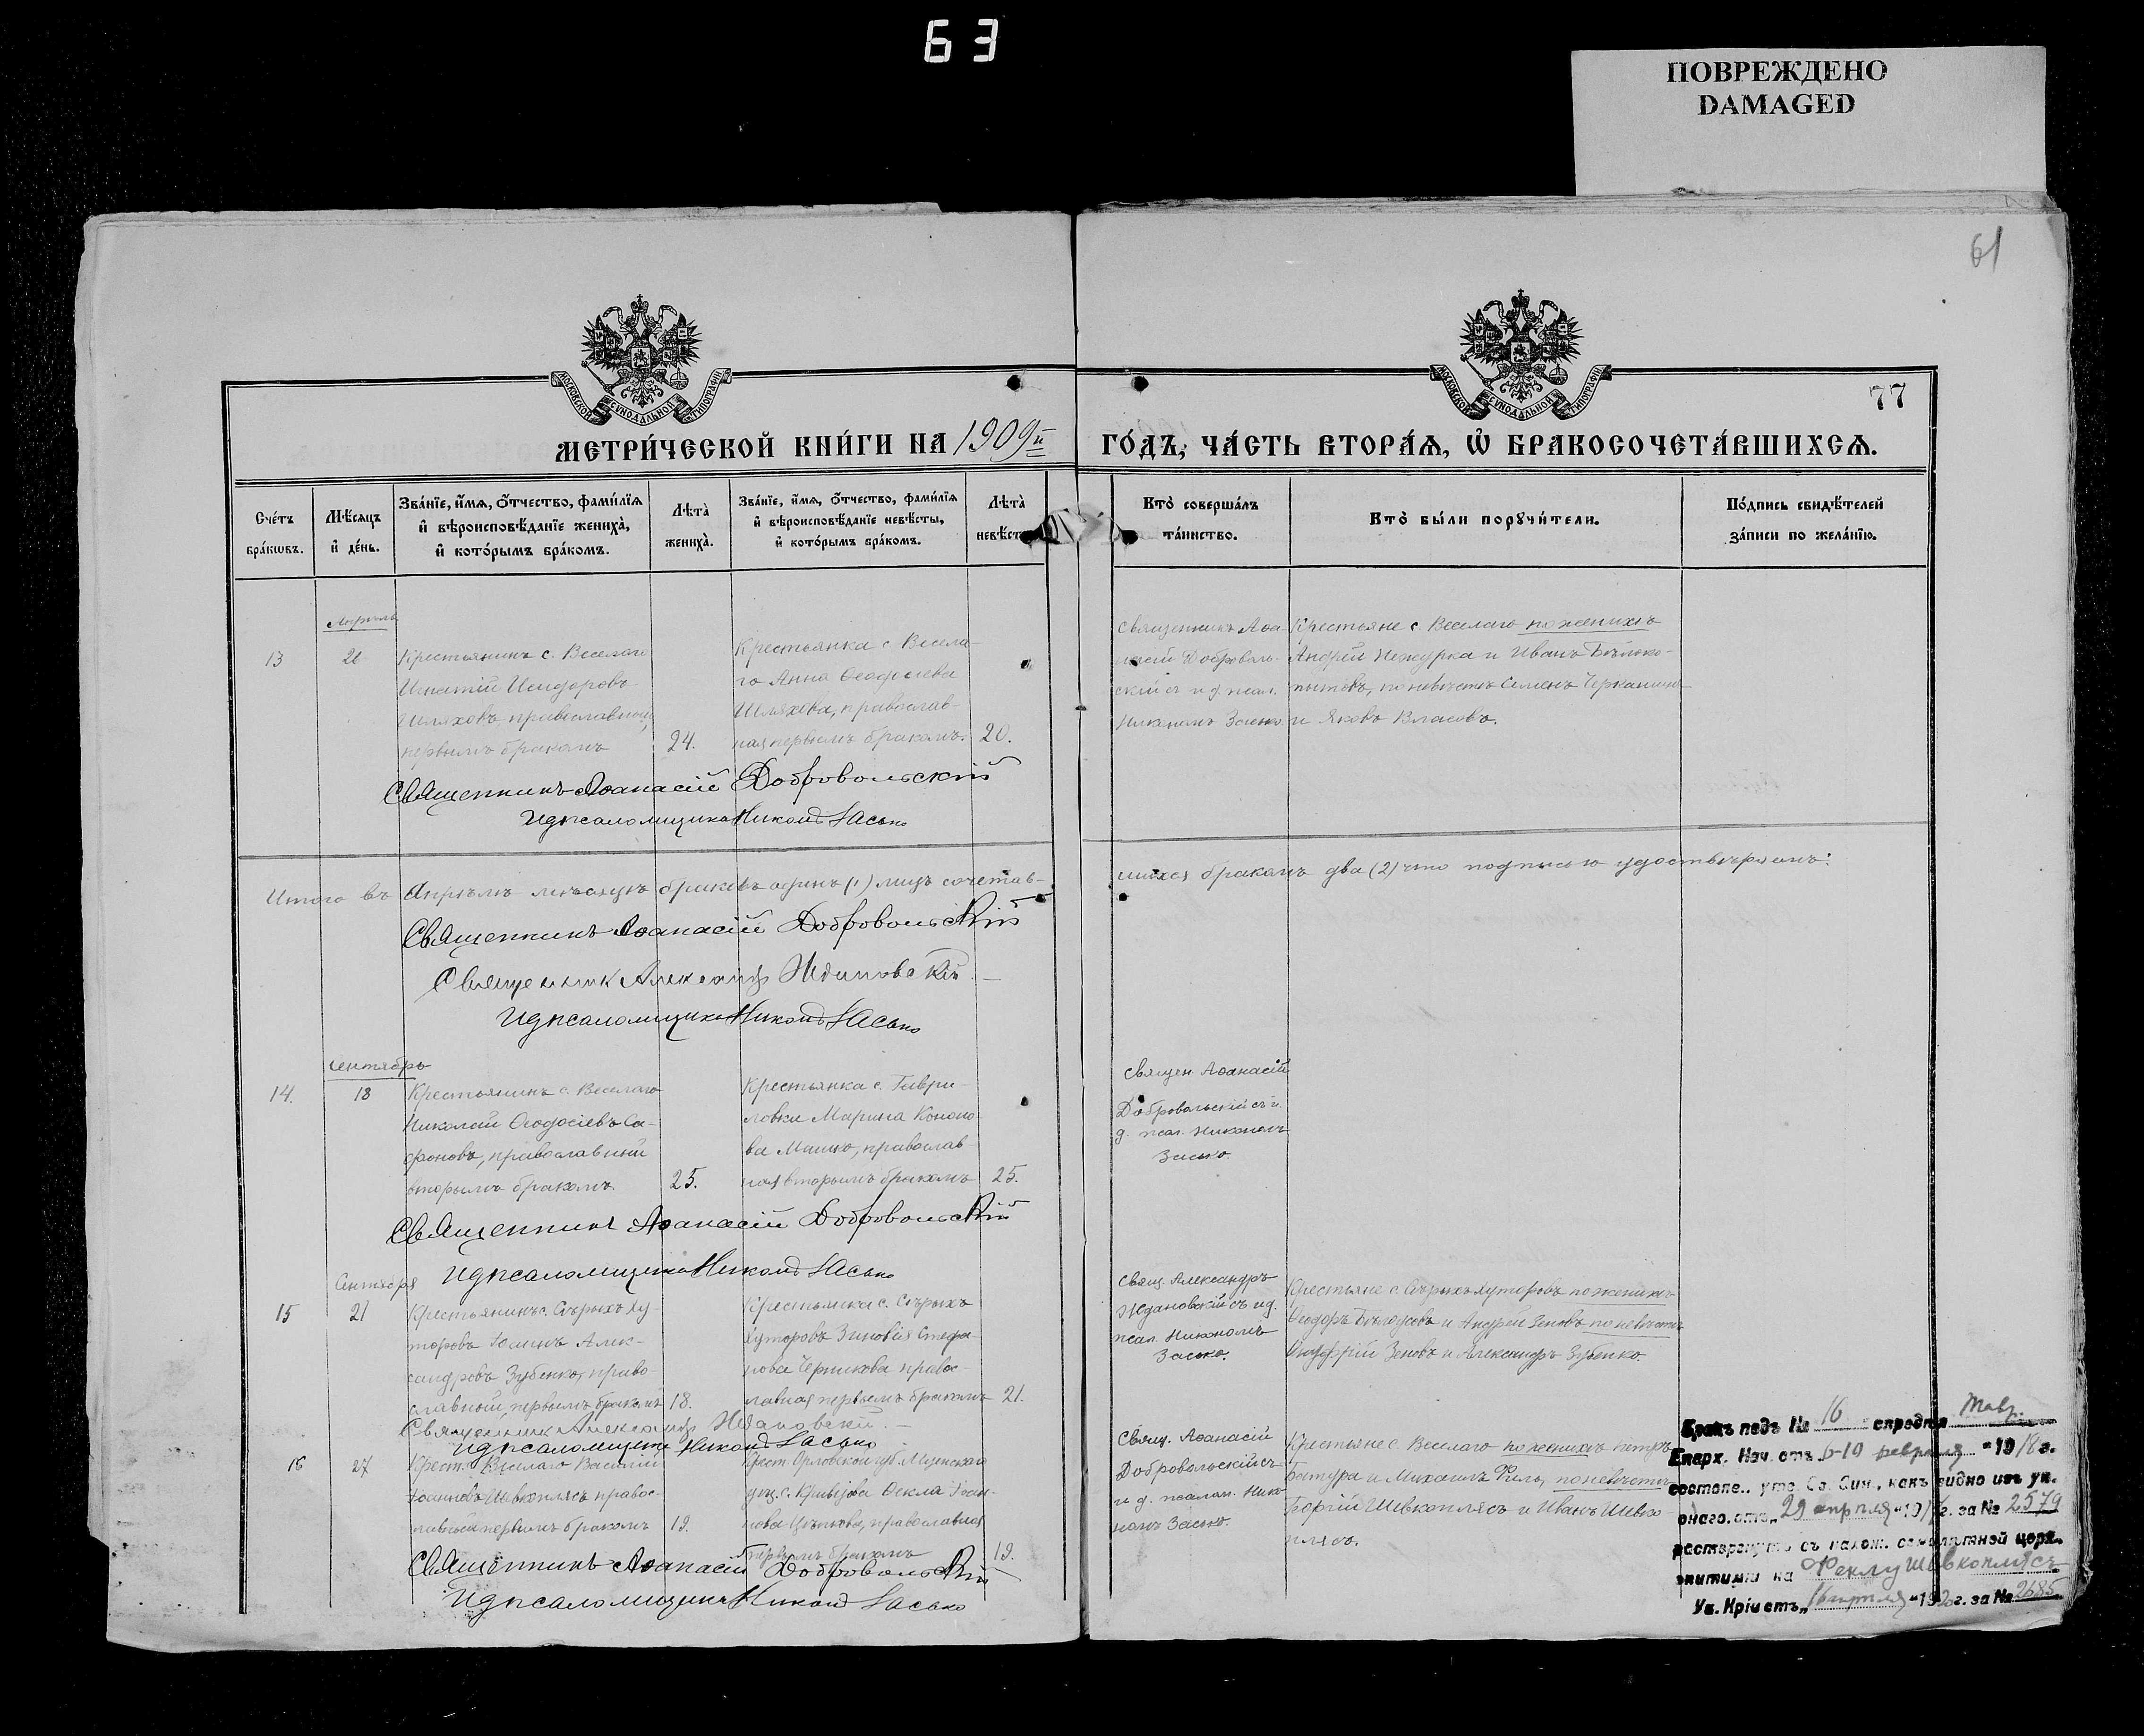 63
ПОВРЕЖДЕНО
DAMAGED
61
МОСКОВСКОЙ СѴНОДАЛЬНОЙ ТИПОГРАФІИ
МОСКОВСКОЙ СѴНОДАЛЬНОЙ ТИПОГРАФІИ
77
МЕТРИ́ЧЕСКОЙ КНИ́ГИ НА 1909й ГО́ДЪ, ЧА́СТЬ ВТОРА́Я, Ѽ БРАКОСОЧЕТА́ВШИХСЯ.
Сче́тъ
бра́кѡвъ.
Мѣ́сяцъ
и҆ де́нь.
Зва́нїе, и҆́мѧ, ѻ҆́тчество, фами́лїѧ
и҆ вѣроисповѣ́данїе жениха̀,
и҆ кото́рымъ бра́комъ.
Лѣта̀
жениха̀.
Зва́нїе, и҆́мѧ, ѻ҆́тчество, фами́лїѧ
и҆ вѣроисповѣ́данїе невѣ́сты,
и҆ кото́рымъ бра́комъ.
Лѣта̀
невѣ́ст
Кто̀ соверша́лъ
та́инство.
Кто̀ бы́ли порꙋчи́тели.
По́дпись свидѣ́телей
за́писи по жела́нїю.
Апрѣль
13
26
Крестьянинъ с. Веселаго
Игнатій Исидоровъ
Шляховъ православный,
первымъ бракомъ
24.
Крестьянка с. Весела-
го Анна Ѳеодосіева
Шляхова, православ-
ная первымъ бракомъ.
20.
Священникъ Аѳа-
насій Доброволь-
скій съ и д. псал.
Никономъ Засько.
Крестьяне с. Веселаго по женихѣ
Андрей Нежурка и Иванъ Бѣлоко-
пытовъ, по невѣстѣ Семенъ
и Яковъ Власовъ.
Священникъ Аѳанасій Добровольскій
И д псаломщика Никонъ Засько
Итого въ Апрѣлѣ мѣсяцѣ браковъ одинъ (1) лицъ сочетав-
шихся бракомъ два (2) что подписью удостовѣряемъ:
Священникъ Аѳанасій Добровольскій
Священник Александр Ждановскій
И д псаломщика Никонъ Засько
Сентябрь
14.
13
Крестьянинъ с. Веселаго
Николай Ѳеодосіевъ Са-
фоновъ, православный
вторымъ бракомъ.
25.
Крестьянка с. Гаври-
ловки Марина Кононо-
ва Мишко, православ-
ная вторымъ бракомъ
25.
Священ. Аѳанасій
Добровольскій съ и.
д. псал. Никономъ
Засько.
Священникъ Аѳанасій Добровольскій
И д псаломщика Никонъ Засько
Сентября
15
21
Крестьянинъ с. Сѣрыхъ Ху-
торовъ Іоаннъ Алек-
сандровъ Зубенко, право
славный, первымъ бракомъ
18.
Крестьянка с. Сѣрыхъ
Хуторовъ Зиновія Стефа
нова Черникова право-
славная первымъ бракомъ
21.
Свящ. Александръ
Ждановскій съ и д.
псал. Никономъ
Засько.
Крестьяне с. Сѣрыхъ Хуторовъ по женихѣ
Ѳеодоръ и Андрей Зеновъ по невѣстѣ
Онуфрій Зеновъ и Александръ Зубенко.
Священник Александр Ждановскій.
И д псаломщика Никонъ Засько
16
27
Крест. с. Веселаго Василій
Іоанновъ Шевкоплясъ правос-
лавный первымъ бракомъ
19.
Крест. Орловской губ. Мценскаго
уѣз. с. Кривцова Ѳекла Іоан-
нова православная
первымъ бракомъ
19.
Свящ. Аѳанасій
Добровольскій съ
и д. псалом. Нико-
номъ Засько.
Крестьяне с. Веселаго по женихѣ Петръ
Батура и Михаилъ Филь, по невѣстѣ
Георгій Шевкоплясъ и Иванъ Шевко-
плясъ.
Священникъ Аѳанасій Добровольскій
И д псаломщика Никонъ Засько
Бракъ подъ № 16 опредѣл. Тавр.
Епарх. Нач. отъ 6-19 февраля 1918 г.
состояв.. утв. Св. Син., какъ видно изъ ук.
онаго. отъ „29 апрѣля“ 191 г. за № 2579
расторгнутъ съ налож. семилѣтней церк.
эпитиміи на Феклу Шевкоплясъ
Ук. Кр отъ „16 апреля“ 1920 г. за № 2685